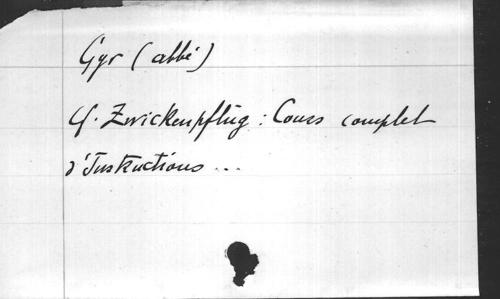 Gyr (abbé)
Cf. Zwickenpflug : Cours complet
d'Instructions ...